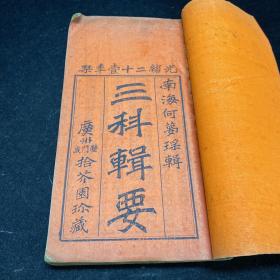 光緒二十壹年栞
南海何夢瑤輯
三科輯要
廣州
拾芥園珍藏